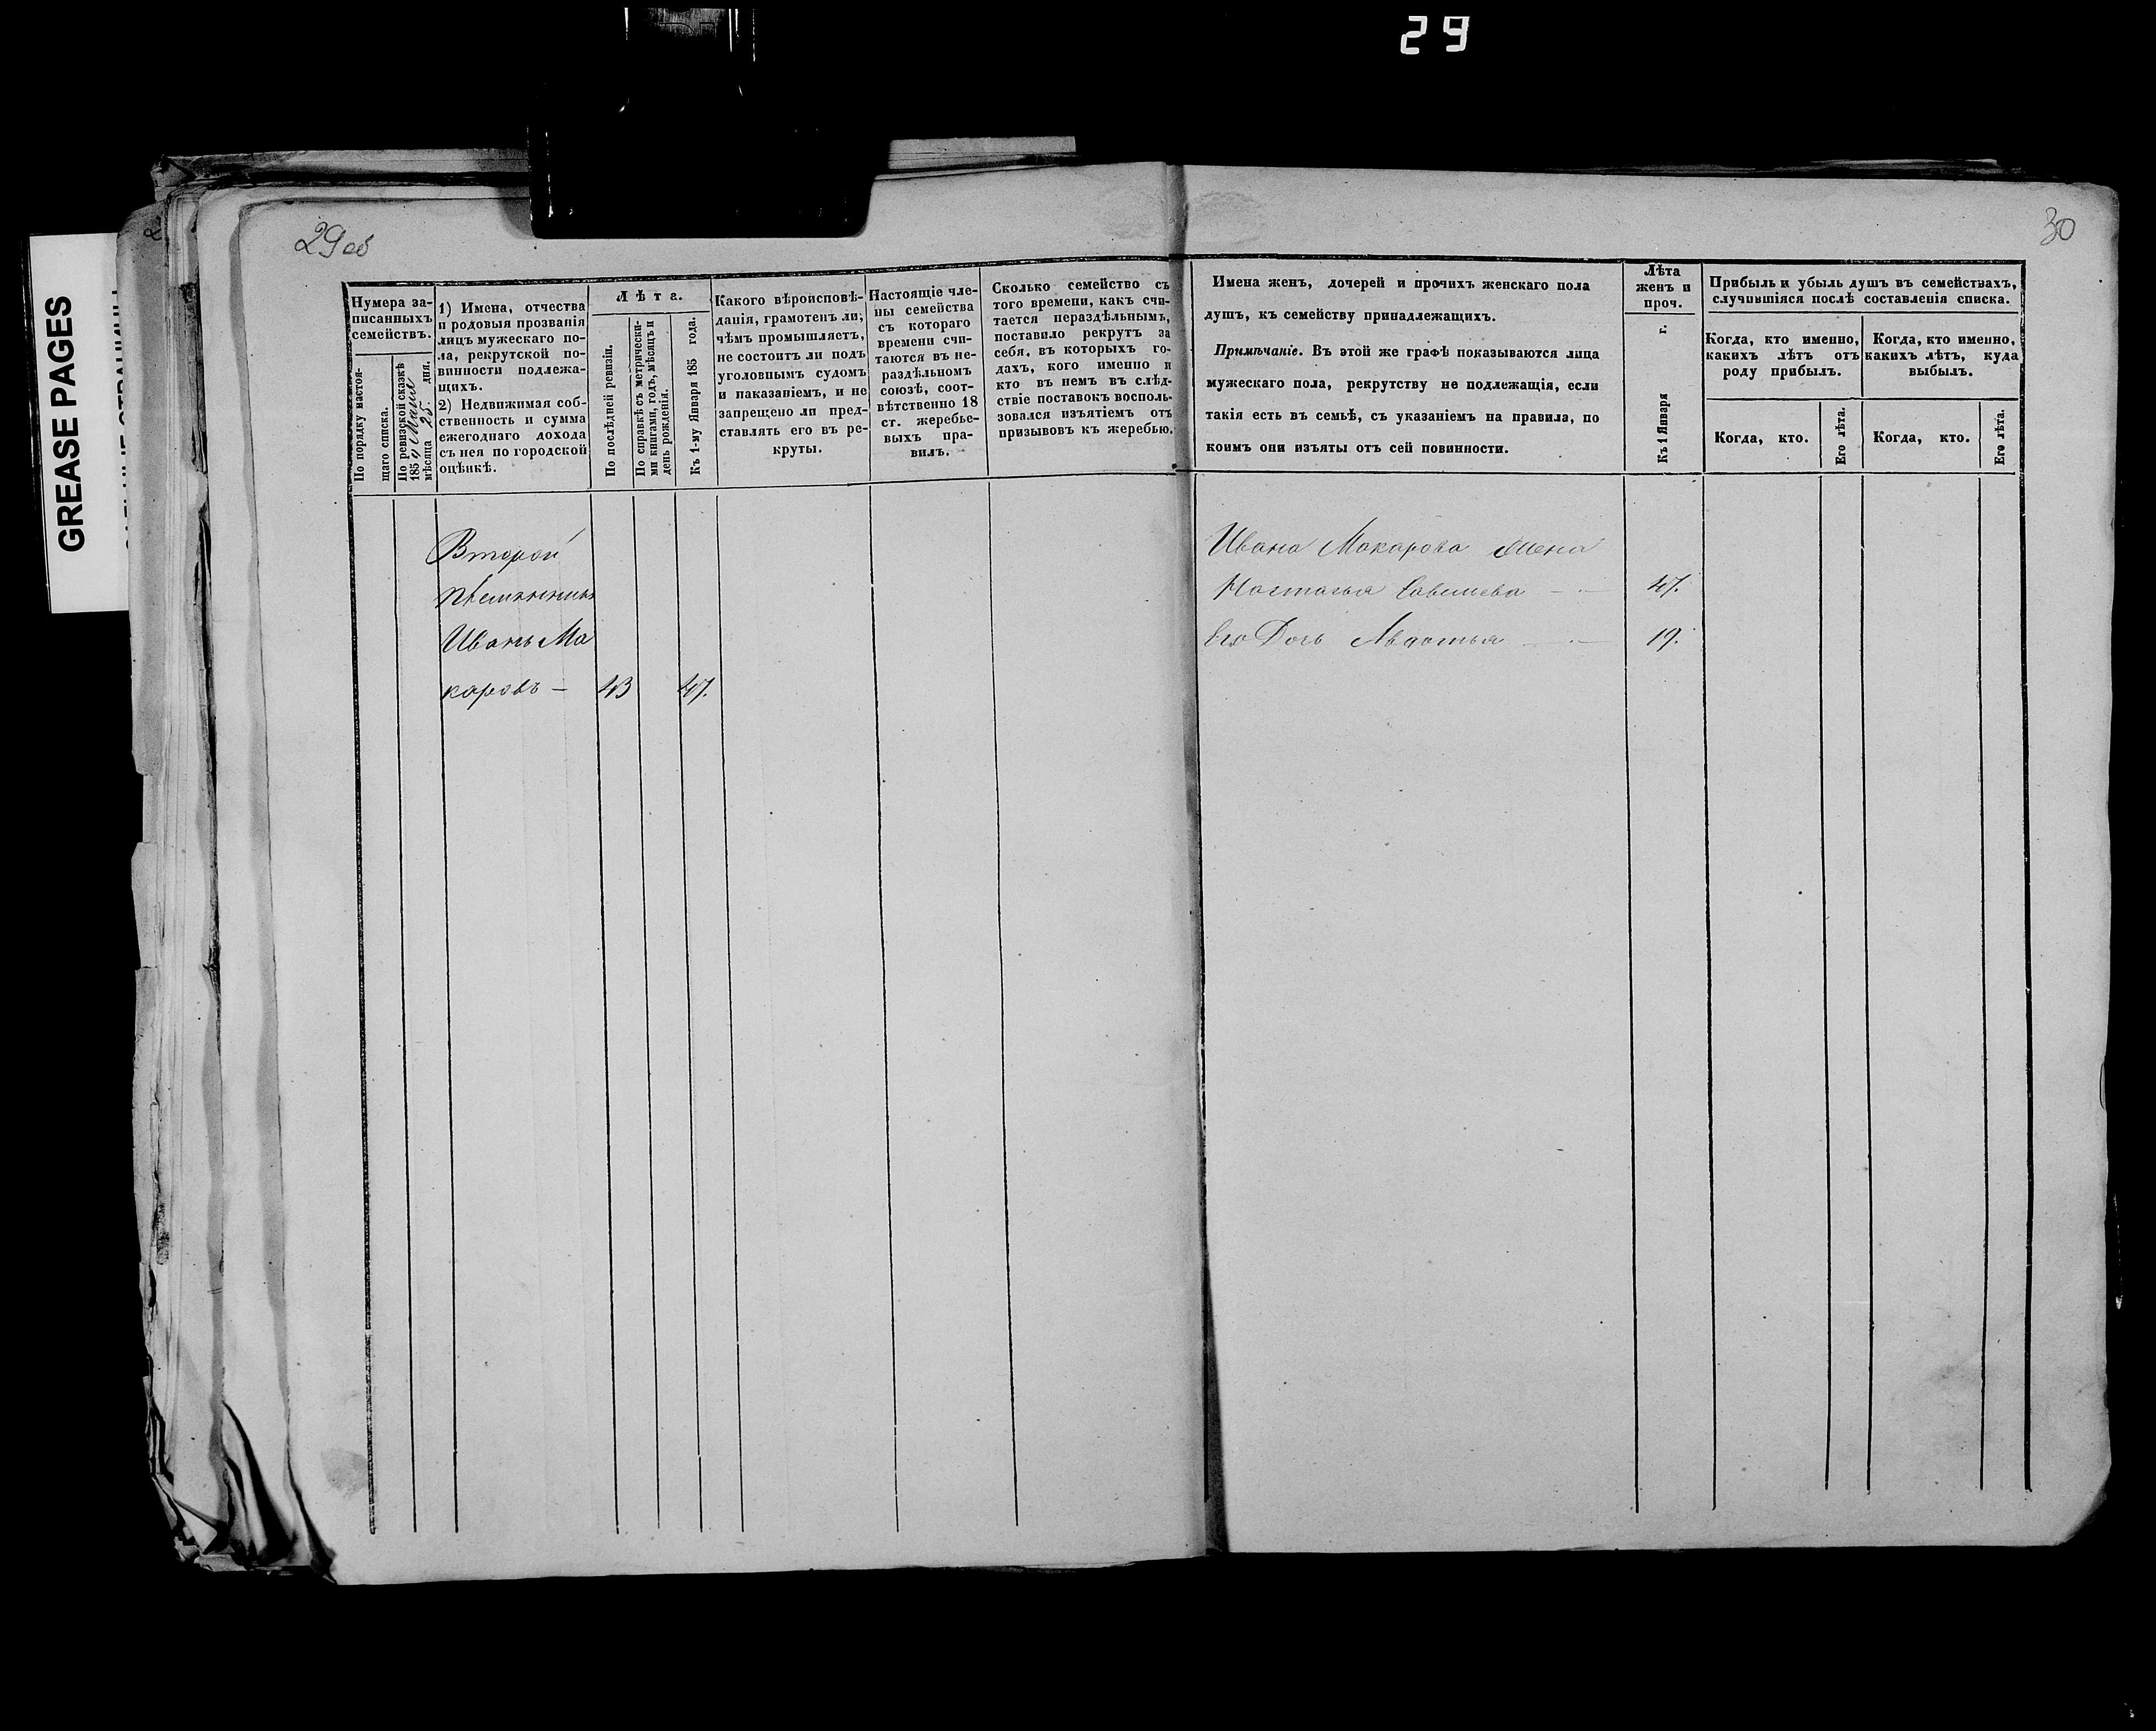 29
GREASE PAGES
29 об
30
Нумера за-
писанныхъ
семействъ.
По порядку настоя-
щаго списка.
По ревизской сказкѣ
185
мѣсяца 25. дня.
1) Имена, отчества
и родовыя прозванія
лицъ мужескаго по-
ла, рекрутской по-
винности подлежа-
щихъ.
2) Недвижимая соб-
ственность и сумма
ежегоднаго дохода
съ нея по городской
оцѣнкѣ.
Лѣта.
По послѣдней ревизіи.
По справкѣ съ метрически-
ми книгами, годъ, мѣсяцъ и
день рожденія.
Къ 1-му Января 185 года.
Какого вѣроисповѣ-
данія, грамотенъ ли;
чѣмъ промышляетъ,
не состоитъ ли подъ
уголовнымъ судомъ
и наказаніемъ, и не
запрещено ли пред-
ставлять его въ ре-
круты.
Настоящіе чле-
ны семейства
съ котораго
времени счи-
таются въ не-
раздѣльномъ
союзѣ, соот-
вѣтственно 18
ст. жеребье-
выхъ пра-
вилъ.
Сколько семейство съ
того времени, какъ счи-
тается нераздѣльнымъ,
поставило рекрутъ за
себя, въ которыхъ го-
дахъ, кого именно и
кто въ немъ въ слѣд-
ствіе поставокъ восполь-
зовался изъятіемъ отъ
призывовъ къ жеребью.
Имена женъ, дочерей и прочихъ женскаго пола
душъ, къ семейству принадлежащихъ.
Примѣчаніе. Въ этой же графѣ показываются лица
мужескаго пола, рекрутству не подлежащія, если
такія есть въ семьѣ, съ указаніемъ на правила, по
коимъ они изъяты отъ сей повинности.
Лѣта
женъ и
проч.
Къ 1 Января г.
Прибыль и убыль душъ въ семействахъ,
случившіяся послѣ составленія списка.
Когда, кто именно,
какихъ лѣтъ отъ
роду прибылъ.
Когда, кто именно,
какихъ лѣтъ, куда
выбылъ.
Когда, кто.
Его лѣта.
Когда, кто.
Его лѣта.
Второй
племянникъ
Иванъ Ма
каровъ – 43 47.
Ивана Макарова жена
Настасья Савельева – 47.
Его Дочь Авдотья – 19.